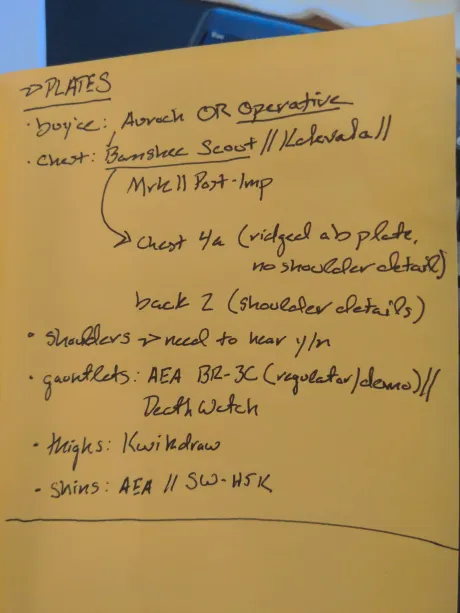 →PLATES
· buy'ce: Auroch OR Operative
· chest: Banshee Scout // Kalevala //
Mrk II Post-Imp
→ Chest 4a (ridged ab plate,
no shoulder detail)
back 2 (shoulder details)
· shoulders → need to hear y/n
· gauntlets: AEA BR-3C (regulator/demo) //
DeathWatch
· thighs: Kwikdraw
· shins: AEA // SW-H5K